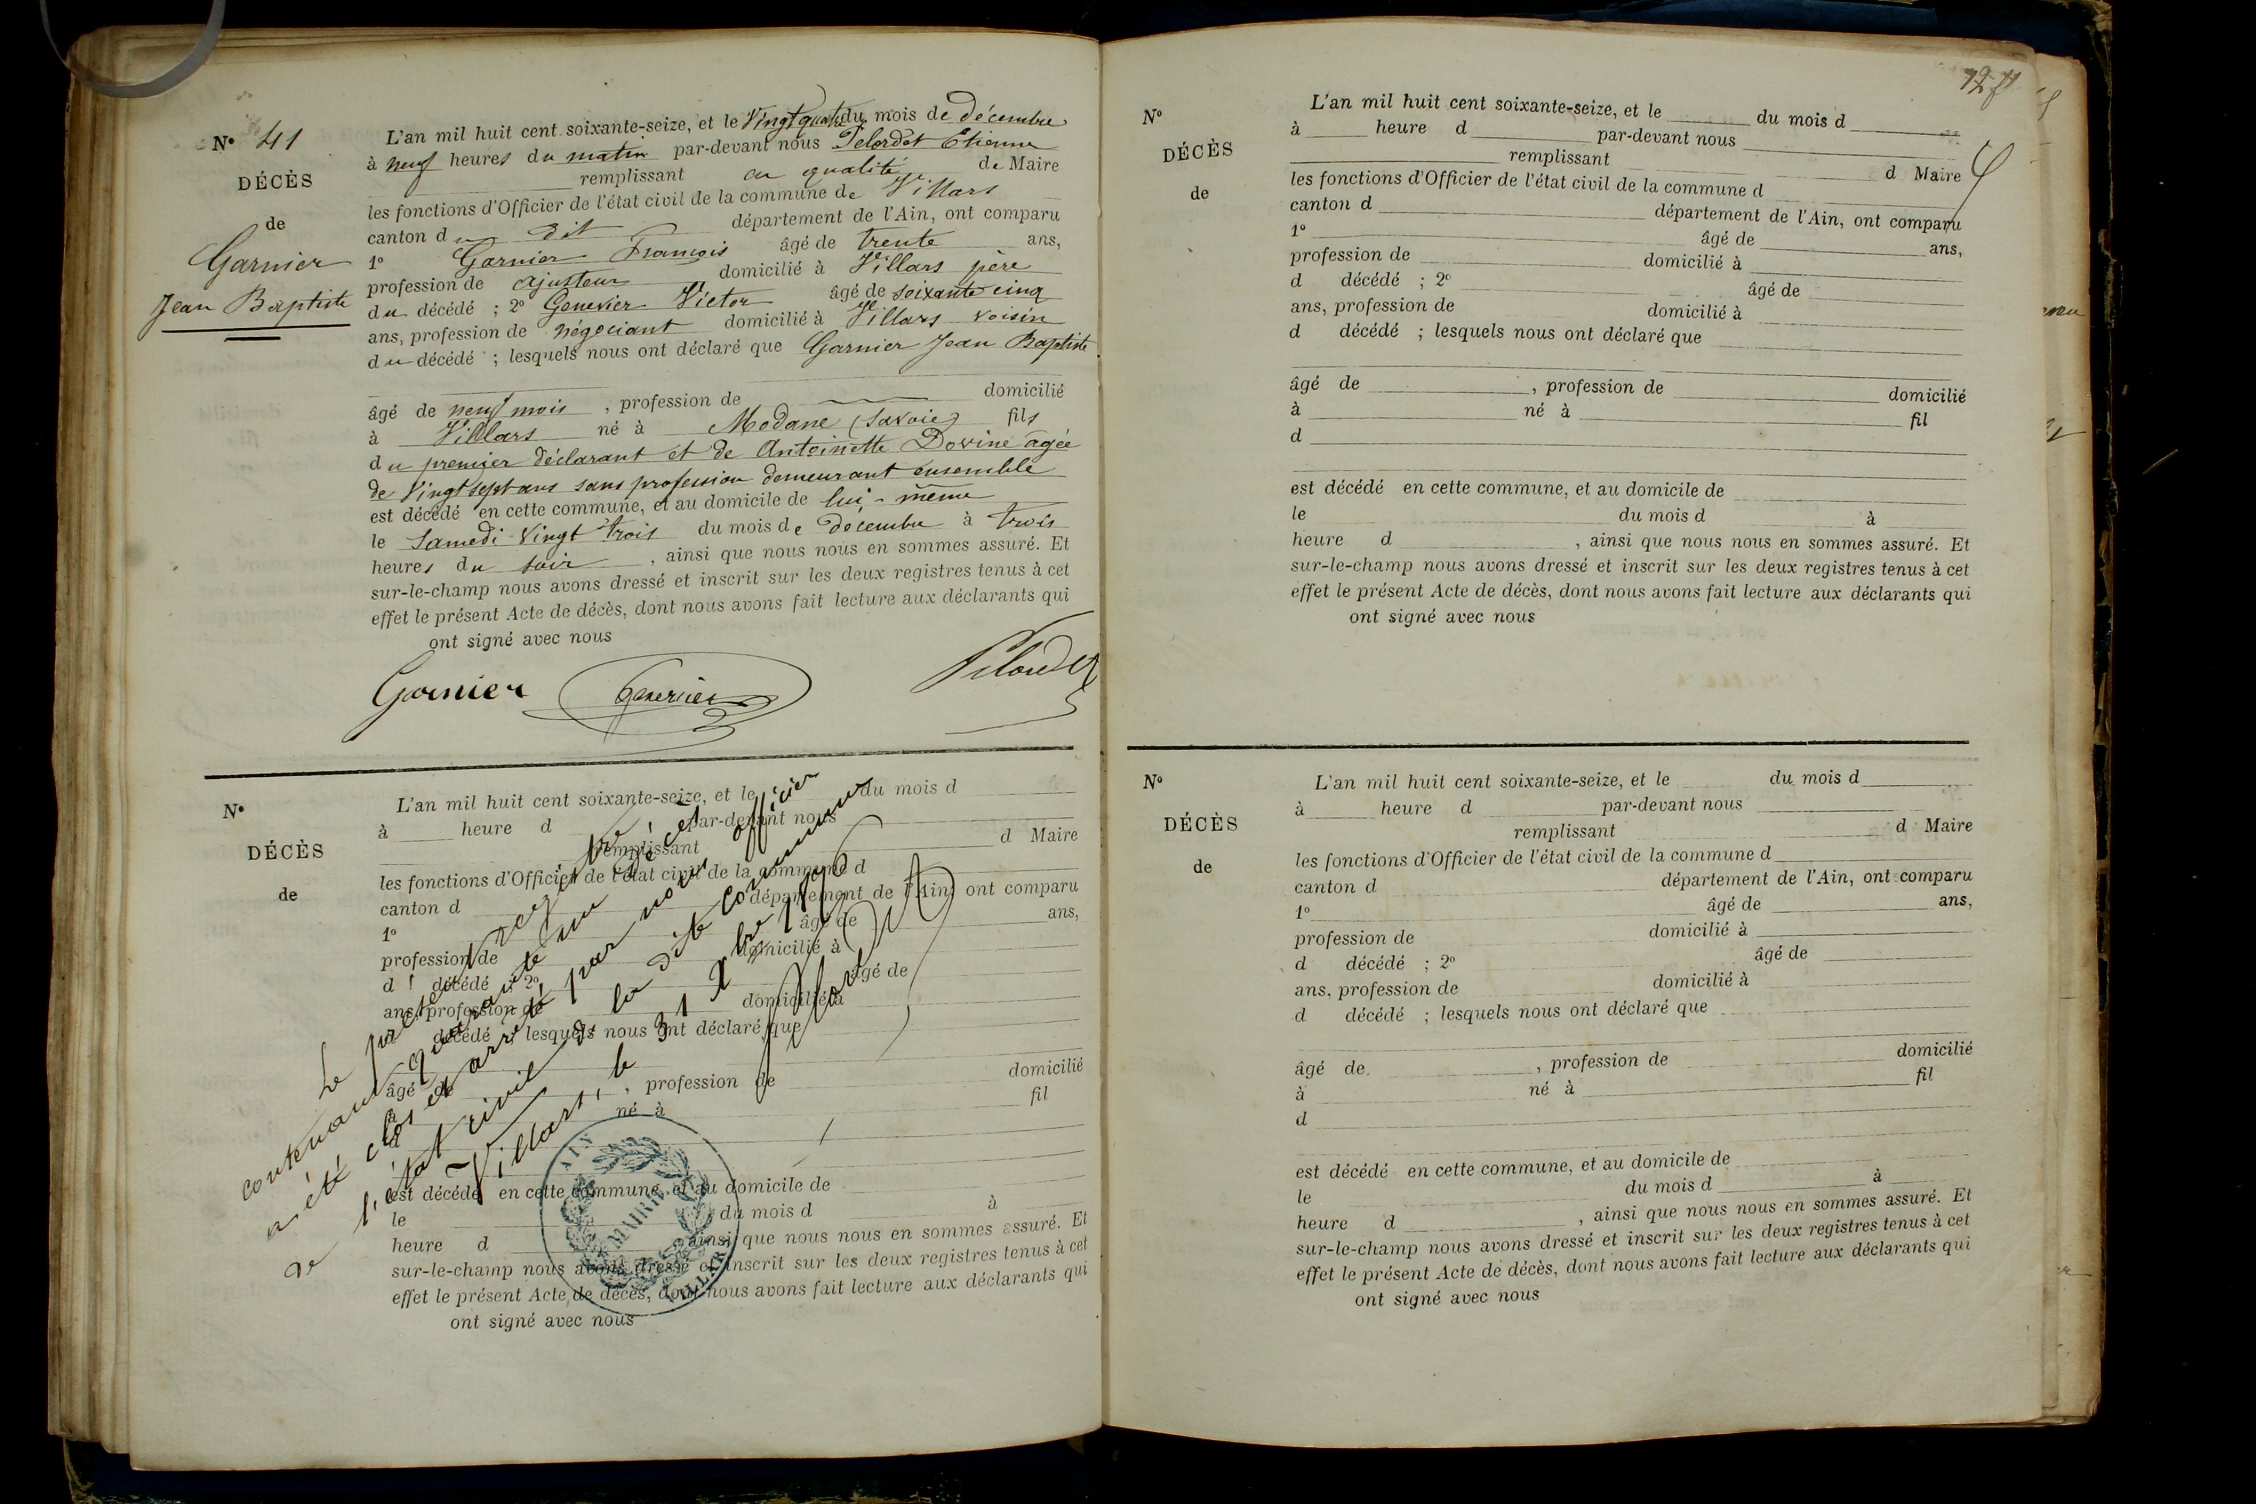 N° 41
DÉCÈS
de
Garnier
Jean Baptiste
L'an mil huit cent soixante-seize, et le Vingt quatre du mois de décembre
à neuf heures du matin par-devant nous Pelordet Etienne
remplissant en qualité de Maire
les fonctions d'Officier de l'état civil de la commune de Villars
canton du dit département de l'Ain, ont comparu
1° Garnier François âgé de trente ans,
profession de ajusteur domicilié à Villars père
du décédé ; 2° Genevier Victor âgé de soixante cinq
ans, profession de négociant domicilié à Villars voisin
du décédé ; lesquels nous ont déclaré que Garnier Jean Baptiste
âgé de neuf mois , profession de domicilié
à Villars né à Modane (Savoie) fils
du premier déclarant et de Antoinette Dovine agée
de Vingt sept ans sans profession demeurant ensemble
est décédé en cette commune, et au domicile de lui-même
le Samedi Vingt trois du mois de décembre à trois
heures du soir , ainsi que nous nous en sommes assuré. Et
sur-le-champ nous avons dressé et inscrit sur les deux registres tenus à cet
effet le présent Acte de décès, dont nous avons fait lecture aux déclarants qui
ont signé avec nous
Garnier Genevier Pelordet
N°
DÉCÈS
de
L'an mil huit cent soixante-seize, et le du mois d
à heure d par-devant nous
remplissant d Maire
les fonctions d'Officier de l'état civil de la commune d
canton d département de l'Ain, ont comparu
1° âgé de ans,
profession de domicilié à
d décédé ; 2° âgé de
ans, profession de domicilié à
d décédé ; lesquels nous ont déclaré que
âgé de , profession de domicilié
à né à fil
d
est décédé en cette commune, et au domicile de
le du mois d à
heure d , ainsi que nous nous en sommes assuré. Et
sur-le-champ nous avons dressé et inscrit sur les deux registres tenus à cet
effet le présent Acte de décès, dont nous avons fait lecture aux déclarants qui
ont signé avec nous
Le présent registre
contenant quarante un décès
a été clos et arrêté par nous officier
de l'état civil de la dite commune
Villars, le 31 Xbre 1876
Pelordet
AIN
MAIRIE
VILLARS
1271
N°
DÉCÈS
de
L'an mil huit cent soixante-seize, et le du mois d
à heure d par-devant nous
remplissant d Maire
les fonctions d'Officier de l'état civil de la commune d
canton d département de l'Ain, ont comparu
1° âgé de ans,
profession de domicilié à
d décédé ; 2° âgé de
ans, profession de domicilié à
d décédé ; lesquels nous ont déclaré que
âgé de , profession de domicilié
à né à fil
d
est décédé en cette commune, et au domicile de
le du mois d à
heure d , ainsi que nous nous en sommes assuré. Et
sur-le-champ nous avons dressé et inscrit sur les deux registres tenus à cet
effet le présent Acte de décès, dont nous avons fait lecture aux déclarants qui
ont signé avec nous
N°
DÉCÈS
de
L'an mil huit cent soixante-seize, et le du mois d
à heure d par-devant nous
remplissant d Maire
les fonctions d'Officier de l'état civil de la commune d
canton d département de l'Ain, ont comparu
1° âgé de ans,
profession de domicilié à
d décédé ; 2° âgé de
ans, profession de domicilié à
d décédé ; lesquels nous ont déclaré que
âgé de , profession de domicilié
à né à fil
d
est décédé en cette commune, et au domicile de
le du mois d à
heure d , ainsi que nous nous en sommes assuré. Et
sur-le-champ nous avons dressé et inscrit sur les deux registres tenus à cet
effet le présent Acte de décès, dont nous avons fait lecture aux déclarants qui
ont signé avec nous